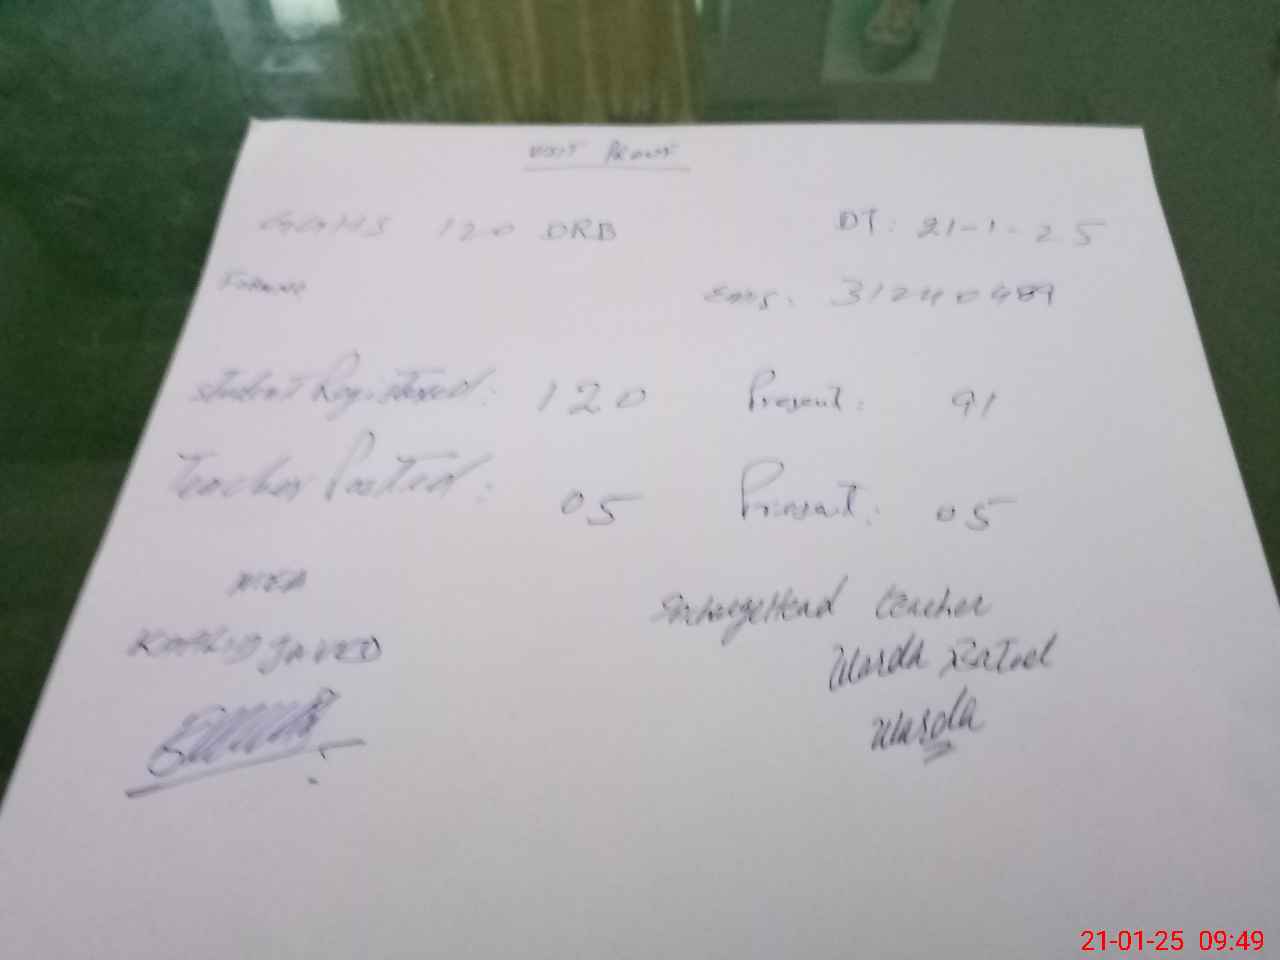 VISIT PROOF
120 DRB DT: 21-1-25
Female Emis: 31240489
Student Registered: 120 Present: 91
Teacher Posted: 05 Present: 05
MEA Incharge Head teacher
KHALID JAVED Warda Batool
Warda
21-01-25 09:49